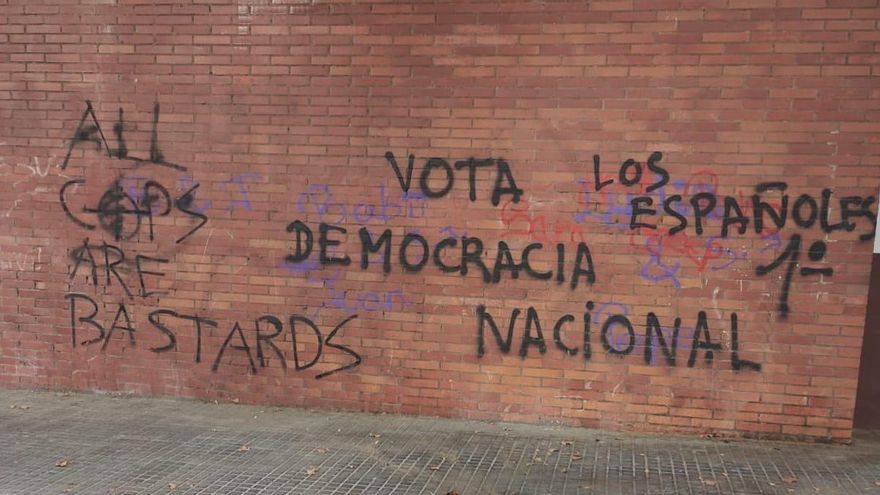 ALL
COPS
ARE
BASTARDS
VOTA
DEMOCRACIA
NACIONAL
LOS
ESPAÑOLES
1º